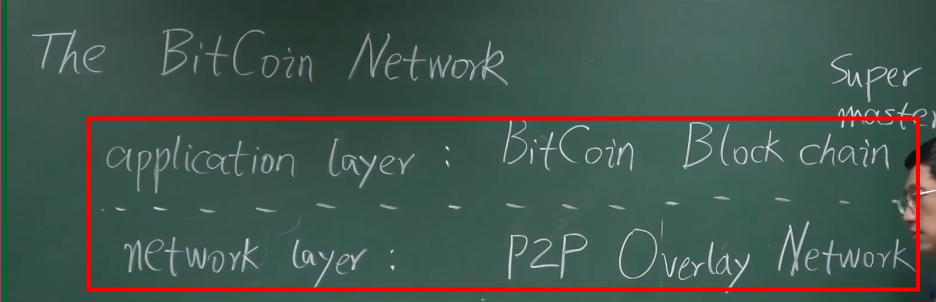 The BitCoin Network
Super
master
application layer : BitCoin Block chain
network layer : P2P Overlay Network